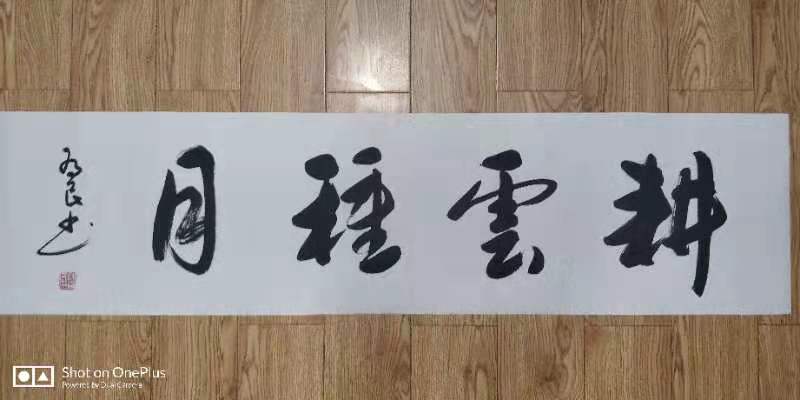 耕雲種月
良书
Shot on OnePlus
Powered by Dual Camera